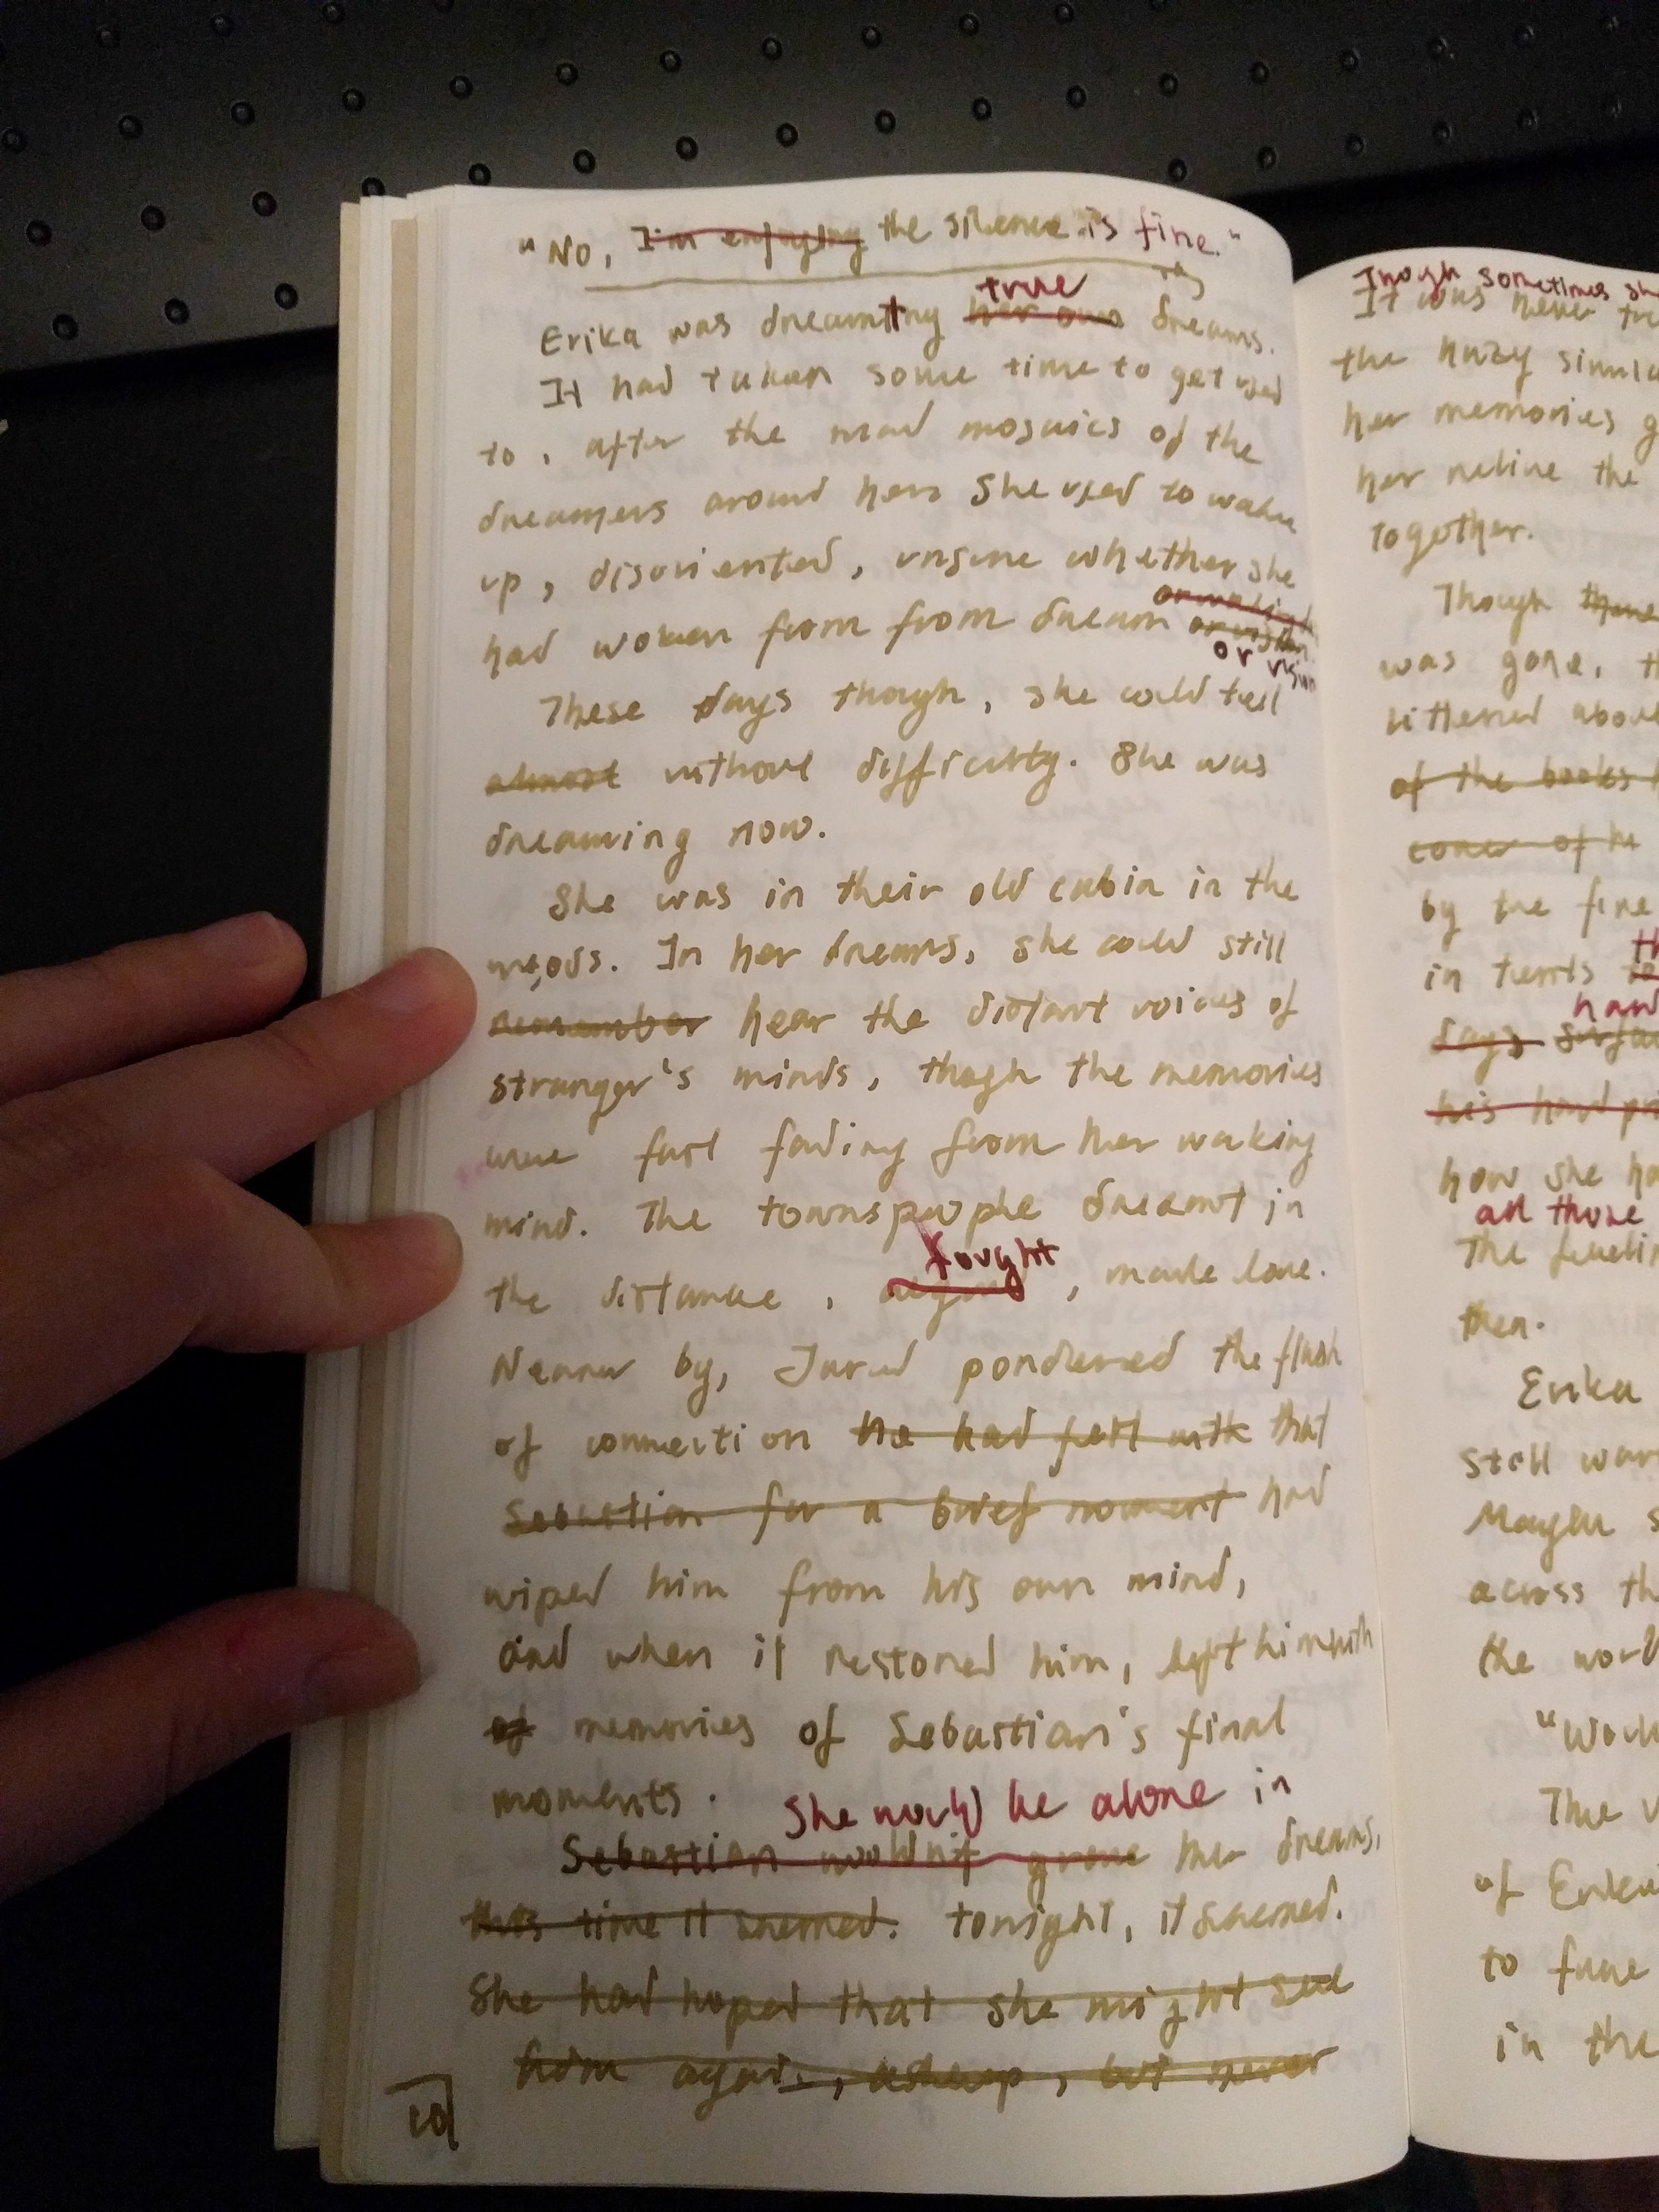 "No, I'm enjoying the silence is fine."
true
Erika was dreaming her own dreams.
It had taken some time to get used
to, after the mad mosaics of the
dreamers around her. She used to wake
up, disoriented, unsure whether she
or waking
had woken from from dream or vision
or vision
These days though, she could tell
almost without difficulty. She was
dreaming now.
She was in their old cabin in the
woods. In her dreams, she could still
remember hear the distant voices of
stranger's minds, though the memories
were fast fading from her waking
mind. The townspeople dreamt in
fought
the distance, argued, made love.
Nearer by, Jared pondered the flash
of connection he had felt with that
Sebastian for a brief moment had
wiped him from his own mind,
and when it restored him, left him with
of memories of Sebastian's final
moments.
She would be alone in
Sebastian wouldn't grace her dreams,
this time it seemed. tonight, it seemed.
She had hoped that she might see
him again, asleep, but never
Though sometimes she
It was never
the hazy
her memories
her relive the
together.
Though there
was gone,
littered
of the books
cover of
by the fire
in tents
days
his hand
how she
all those
The
then.
Erika
still
Maylu
across
the
"Would
The
of
to
in the